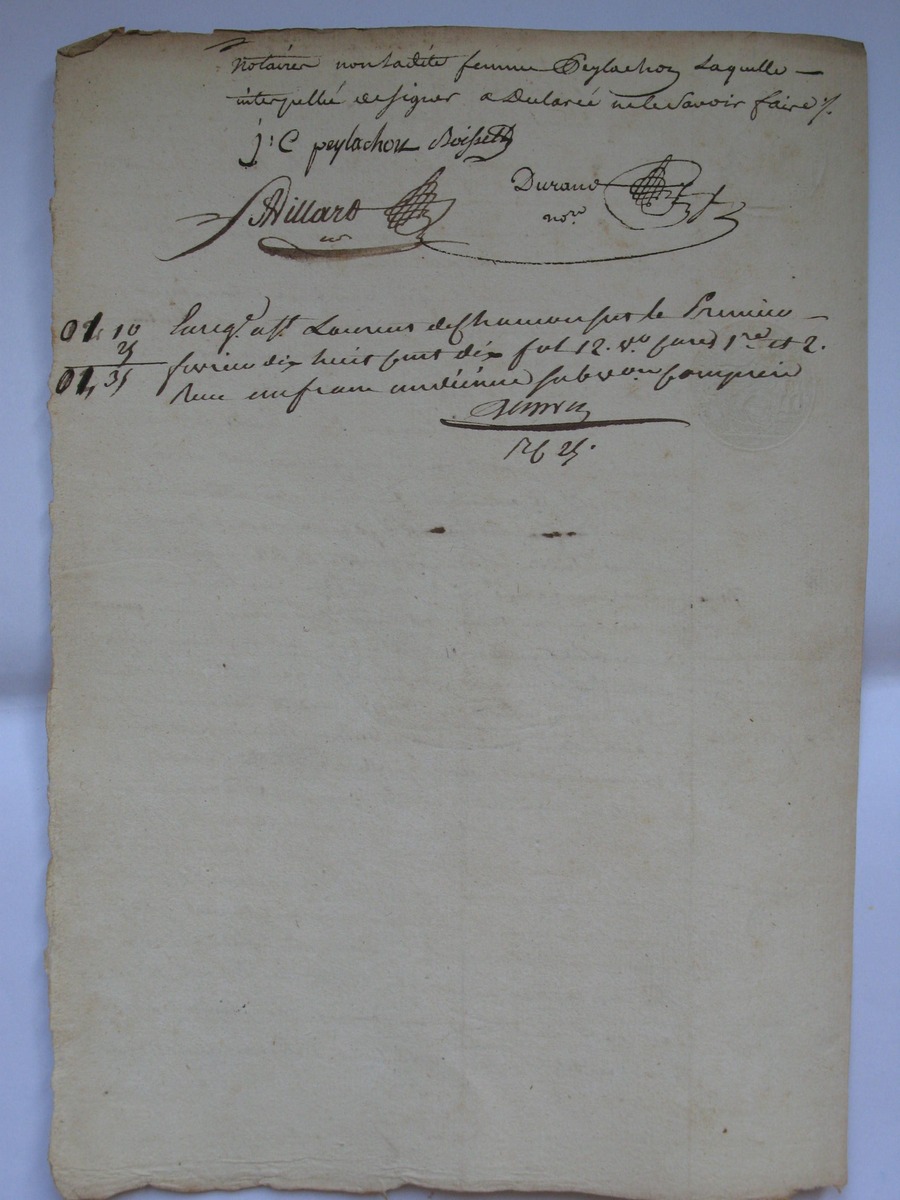 notaires non ladite femme Peylachon Laquelle
interpellée de signer a Declarée ne le Savoir faire ·/.
j: C peylachon Boisset
Durand
Villard
nore
01, 10 Enreg. a St. Laurens de Chamousset le Premier
25 fevrier dix huit cent dix fol 12. vo. cases 1re et 2.
01, 35 Recu un franc un décime subvon comprise